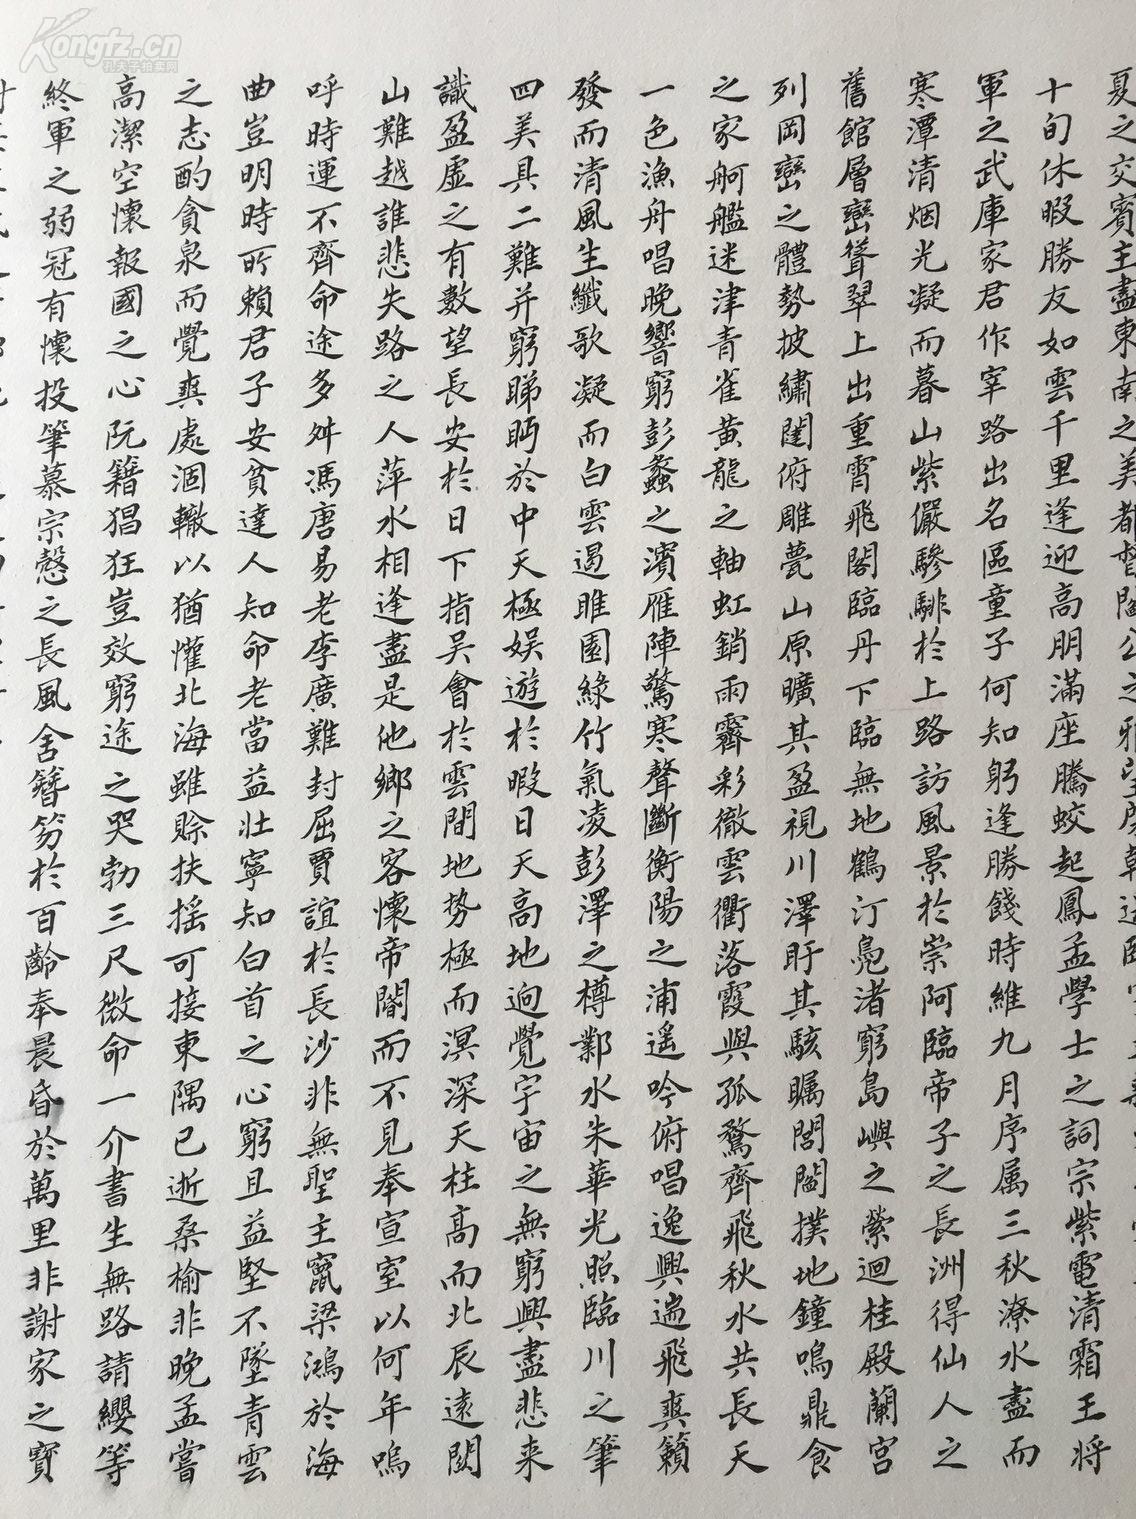 夏之交賓主盡東南之美都督閻公之雅望
十旬休暇勝友如雲千里逢迎高朋滿座騰蛟起鳳孟學士之詞宗紫電清霜王將
軍之武庫家君作宰路出名區童子何知躬逢勝餞時維九月序属三秋潦水盡而
寒潭清烟光凝而暮山紫儼驂騑於上路訪風景於崇阿臨帝子之長洲得仙人之
舊館層巒聳翠上出重霄飛閣臨丹下臨無地鶴汀鳧渚窮島嶼之縈迴桂殿蘭宮
列岡巒之體勢披繡闥俯雕甍山原曠其盈視川澤盱其駭矚閭閻撲地鐘鳴鼎食
之家舸艦迷津青雀黃龍之軸虹銷雨霽彩徹雲衢落霞與孤鶩齊飛秋水共長天
一色漁舟唱晚響窮彭蠡之濱雁陣驚寒聲斷衡陽之浦遥吟俯唱逸興遄飛爽籟
發而清風生纖歌凝而白雲遏睢園綠竹氣凌彭澤之樽鄴水朱華光照臨川之筆
四美具二難并窮睇眄於中天極娱遊於暇日天高地迥覺宇宙之無窮興盡悲来
識盈虛之有數望長安於日下指吴會於雲間地势極而溟深天柱高而北辰遠関
山難越誰悲失路之人萍水相逢盡是他鄉之客懷帝閽而不見奉宣室以何年嗚
呼時運不齊命途多舛馮唐易老李廣難封屈賈誼於長沙非無聖主竄梁鴻於海
曲豈明時所賴君子安貧達人知命老當益壯寧知白首之心窮且益堅不墜青雲
之志酌貪泉而覺爽處涸轍以猶懽北海雖賒扶摇可接東隅已逝桑榆非晚孟嘗
高潔空懷報國之心阮籍猖狂豈效窮途之哭勃三尺微命一介書生無路請纓等
終軍之弱冠有懷投筆慕宗愨之長風舍簪笏於百齡奉晨昏於萬里非謝家之寶
Kongfz.cn
孔夫子拍卖网